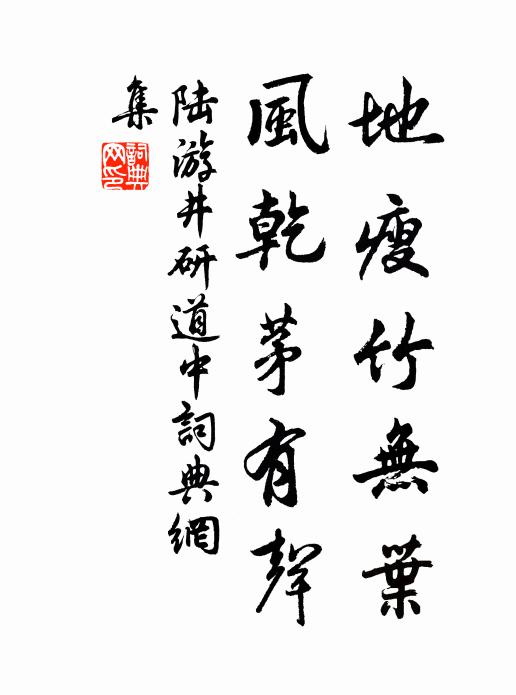 地瘦竹無葉
風乾茅有聲
陆游井研道中詞典網
集
詞典
网印